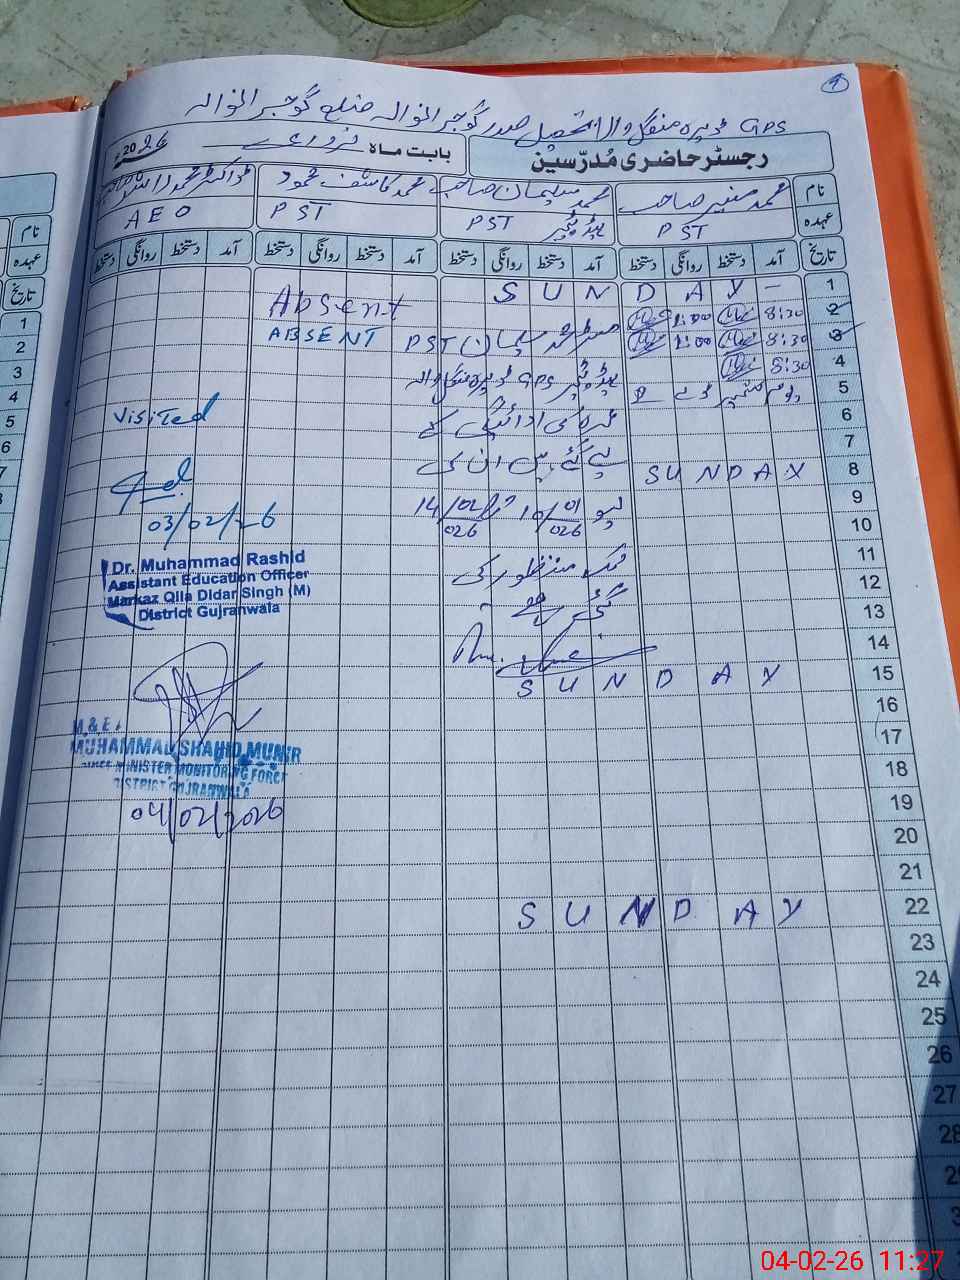 9
GPS ڈیرہ منگل والا تحصیل صدر گوجرانوالہ ضلع گوجرانوالہ
رجسٹر حاضری مُدرّسین
بابت ماہ فروری 2026ء
نام محمد منیر صاحب محمد سلیمان صاحب محمد کاشف محمود ڈاکٹر محمد راشد
عہدہ PST PST ہیڈ ٹیچر PST AEO
تاریخ آمد دستخط روانگی دستخط آمد دستخط روانگی دستخط آمد دستخط روانگی دستخط آمد دستخط روانگی دستخط
1 SUNDAY
2 8:30 1:00 Absent
3 8:30 1:00 مسٹر محمد سلیمان PST ABSENT
4 8:30 ہیڈ ٹیچر GPS ڈیرہ منگل والہ
5 یوم کشمیر ڈے عمرہ کی ادائیگی کے
Visited
6
7 لیے گئے ہیں ان کی
8 SUNDAY
9 لیو 10/01/026 تا 14/02/026
03/02/26
10
11 تک منظور کی
12 گئی ہے
13
14
15 SUNDAY
16
17
18
19
20
21
22 SUNDAY
23
24
25
26
27
28
Dr. Muhammad Rashid
Assistant Education Officer
Markaz Qila Didar Singh (M)
District Gujranwala
M & E A
MUHAMMAD SHAHID MUNIR
CHIEF MINISTER MONITORING FORCE
DISTRICT GUJRANWALA
04/02/2026
نام
عہدہ
تاریخ
1
2
3
4
5
6
7
8
04-02-26 11:27